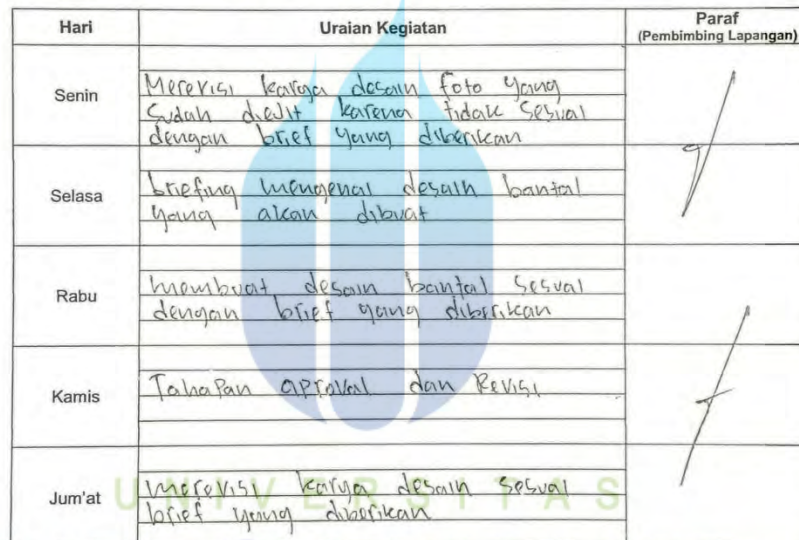 Hari
Uraian Kegiatan
Paraf
(Pembimbing Lapangan)
Senin
Merevisi karya desain foto yang
sudah diedit karena tidak sesuai
dengan brief yang diberikan
Selasa
briefing mengenai desain bantal
yang akan dibuat
Rabu
membuat desain bantal sesuai
dengan brief yang diberikan
Kamis
Tahapan aproval dan Revisi
Jum'at
merevisi karya desain sesuai
brief yang diberikan
UNIVERSITAS